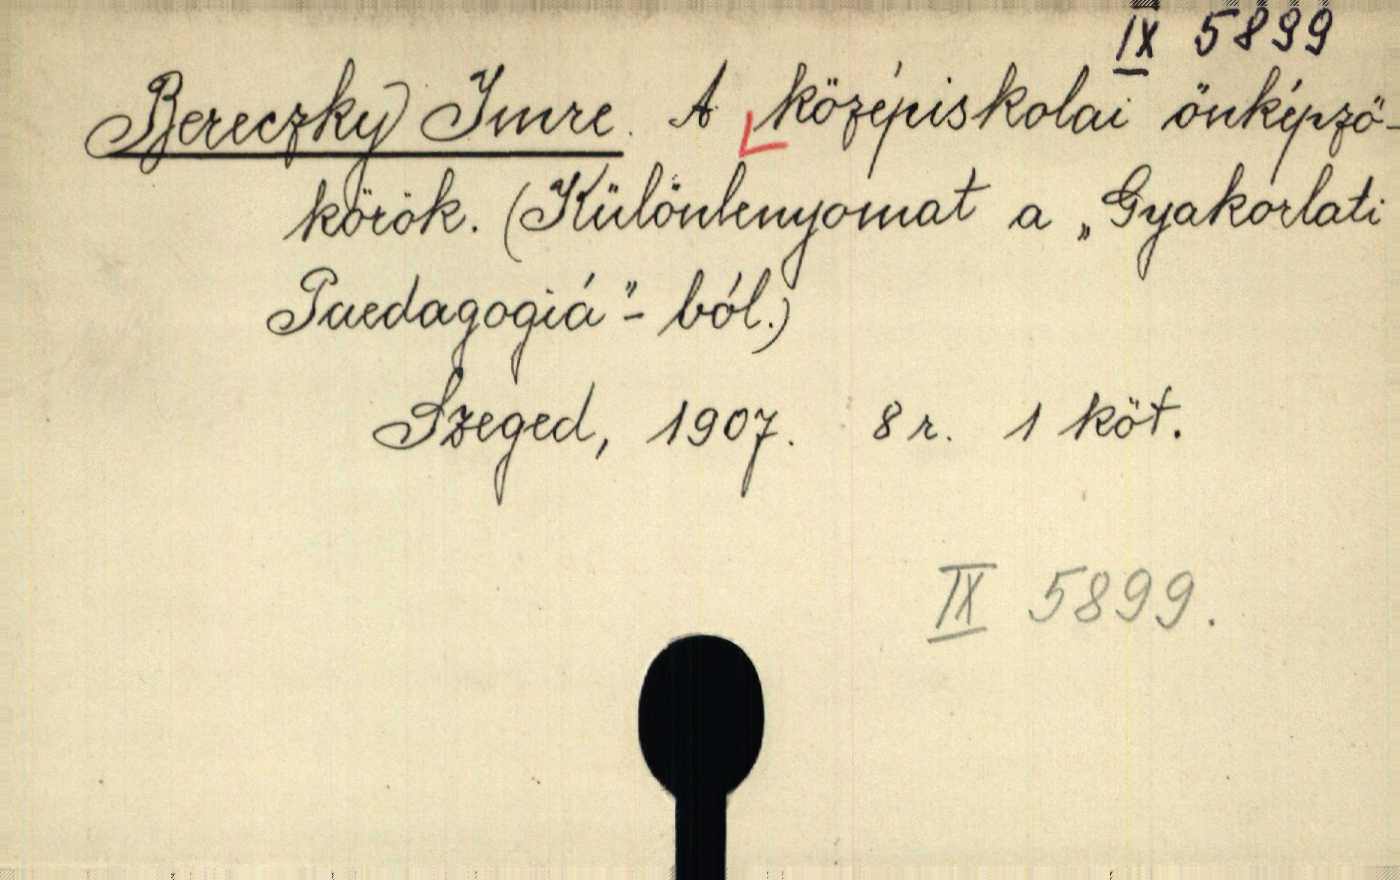 IX 5899
Bereczky Imre. A középiskolai önképző-
körök. (Különlenyomat a „Gyakorlati
Paedagogiá"-ból.)
Szeged, 1907. 8 r. 1 köt.
IX 5899.